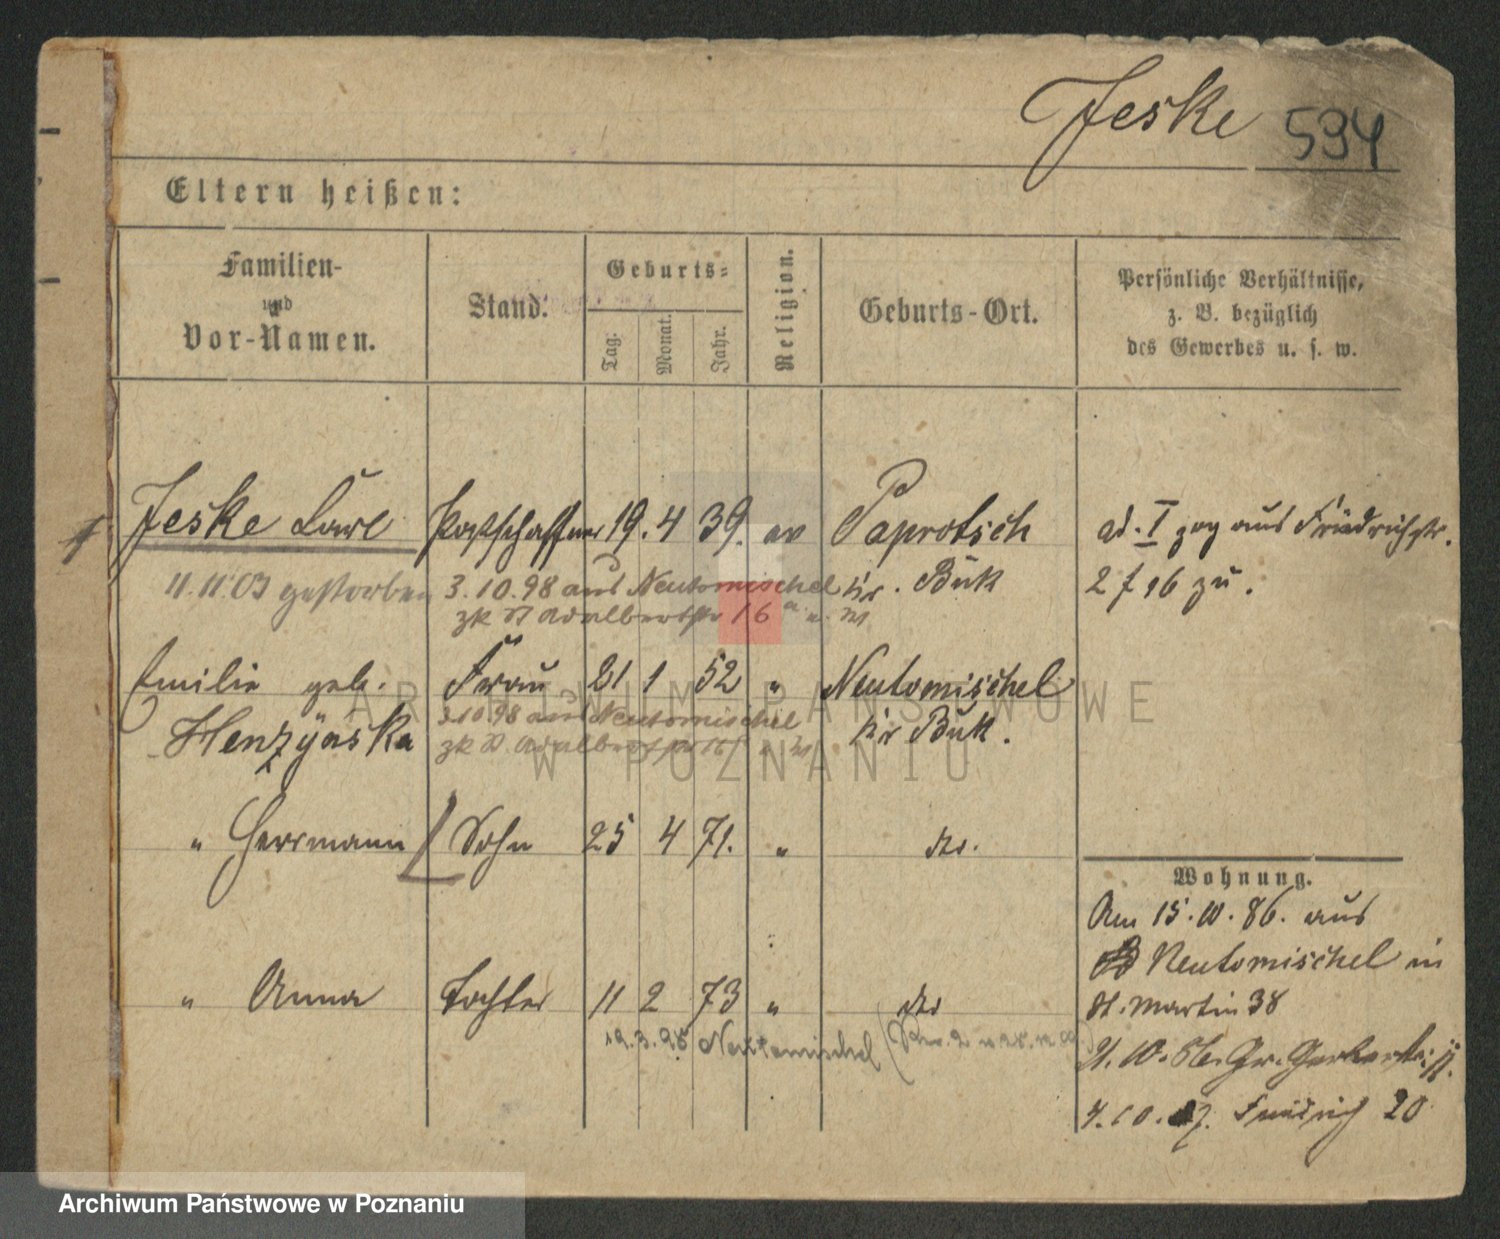 Jeske 594
Eltern heißen:
Familien-
und
Vor-Namen.
Stand.
Geburts-
Tag.
Monat.
Jahr.
Religion.
Geburts-Ort.
Persönliche Verhältnisse,
z. B. bezüglich
des Gewerbes u. s. w.
Jeske Carl Postschaffner 19. 4 39. ev Paprotsch
Kr. Buk
ad. I zog aus Friedrichstr.
2 zu.
11.11.03 gestorben 3.10.98 aus Neutomischel
Adalbertstr 16
Emilie geb. Frau 21 1 52 " Neutomischel
Henzyńska Kr Buk.
3.10.98 aus Neutomischel
" Herrmann Sohn 25 4 71. " do.
" Anna Tochter 11 2 73 " do
19.3.98 Neutomischel
Wohnung.
Am 15.10.86. aus
Neutomischel in
St. Martin 38
Gr. Gerberstr.
4.10.87. 20
ARCHIWUM PAŃSTWOWE
W POZNANIU
Archiwum Państwowe w Poznaniu